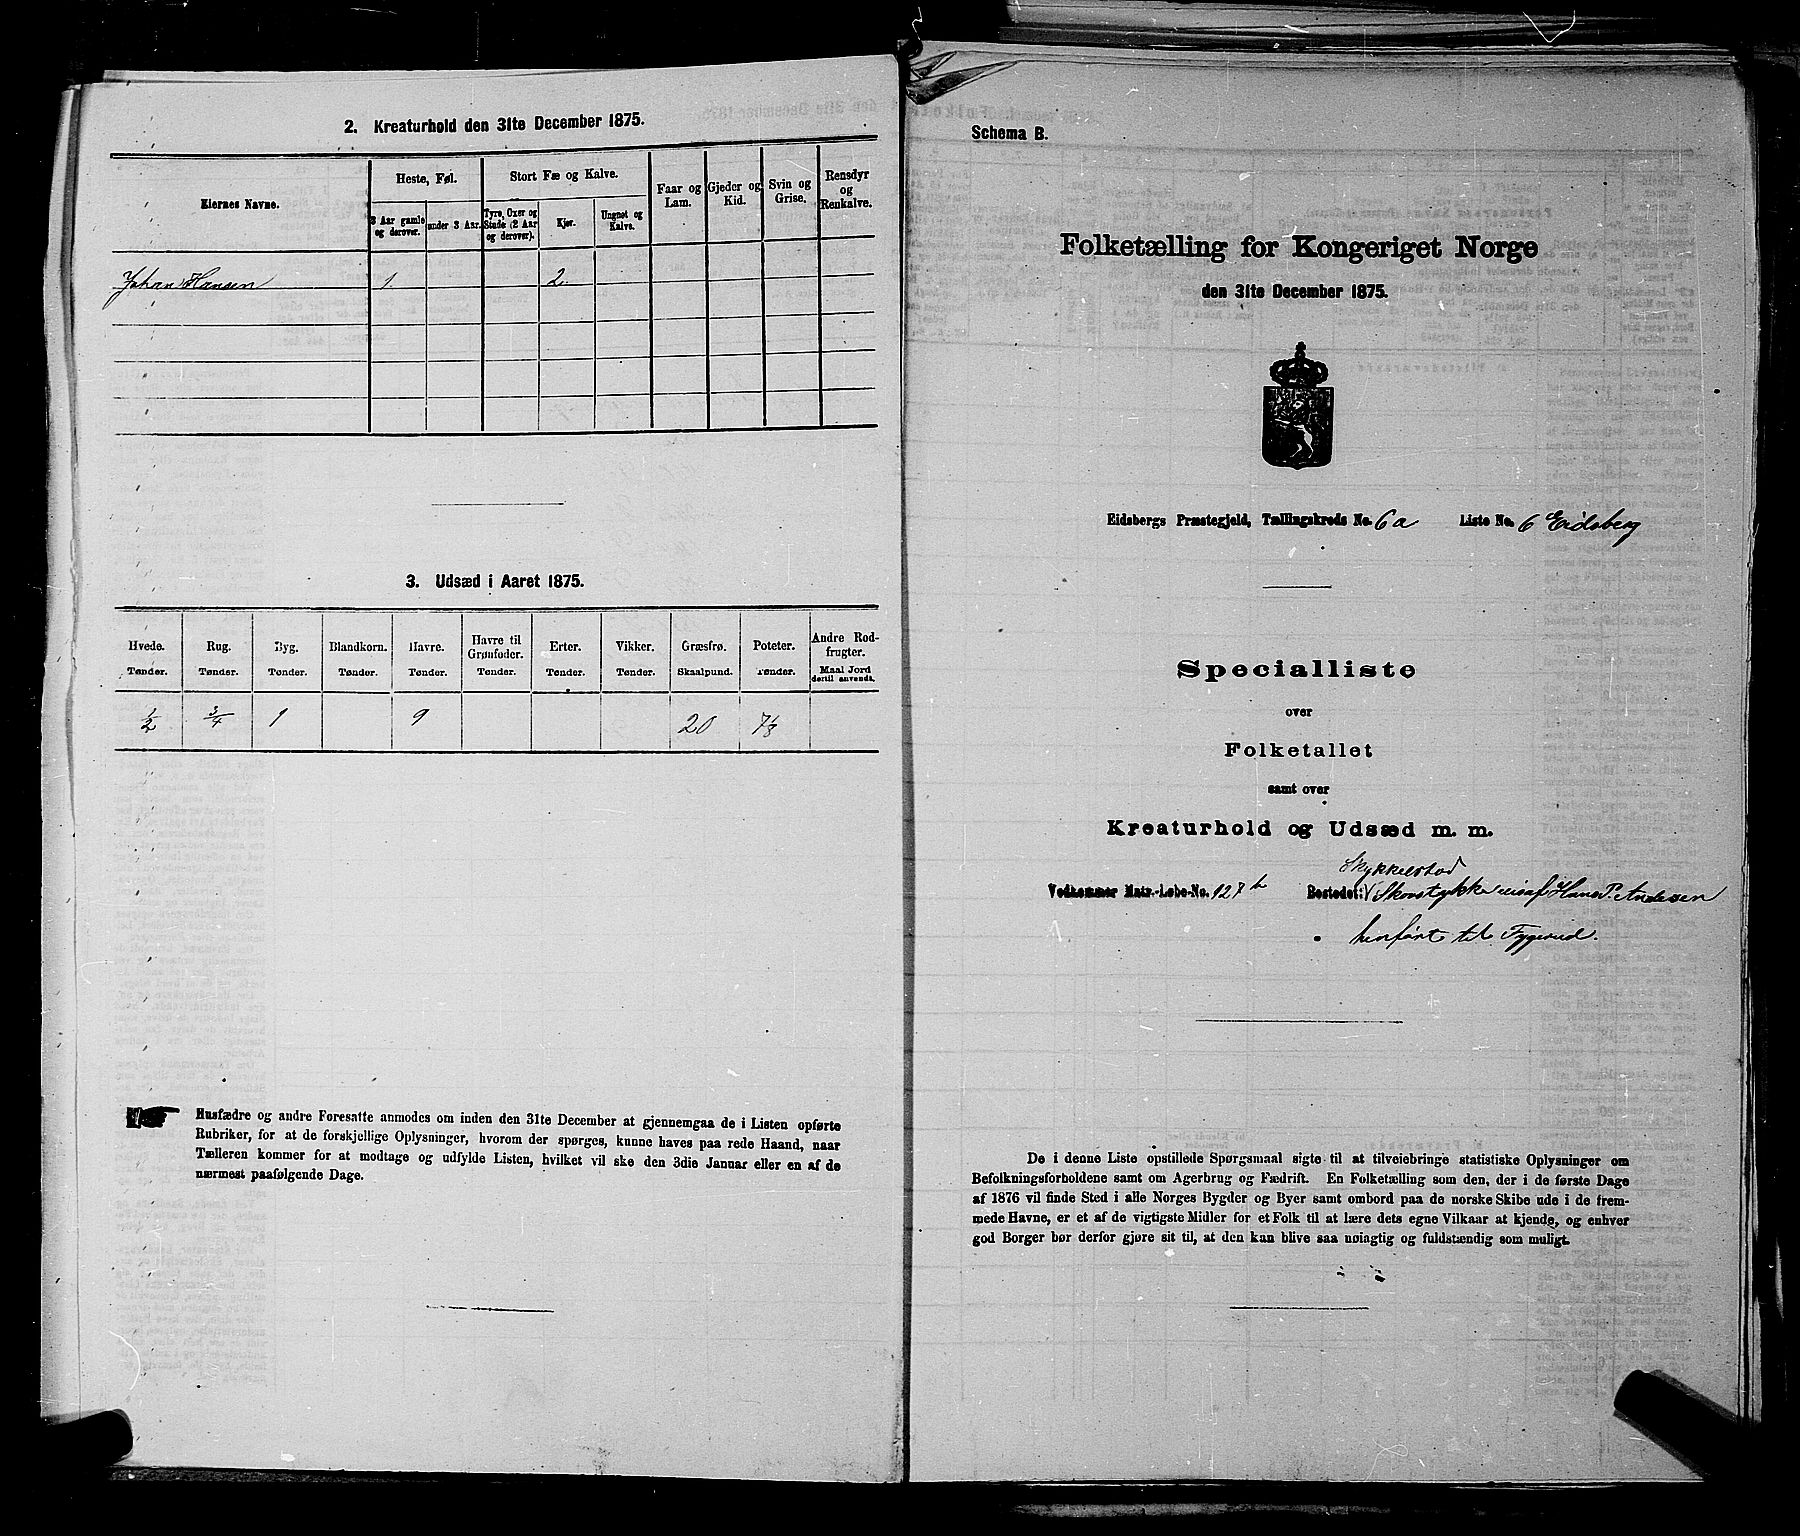 2. Kreaturhold den 31te December 1875.
Eiernes Navne.
Heste, Føl.
Stort Fæ og Kalve.
Faar og Lam.
Gjeder og Kid.
Svin og Grise.
Rensdyr og Renkalve.
3 Aar gamle og derover.
under 3 Aar.
Tyre, Oxer og Stude (2 Aar og derover).
Kjør.
Ungnøt og Kalve.
Johan Hansen 1. 2.
3. Udsæd i Aaret 1875.
Hvede. Rug. Byg. Blandkorn. Havre. Havre til Grønfoder. Erter. Vikker. Græsfrø. Poteter. Andre Rodfrugter.
Tønder. Tønder. Tønder. Tønder. Tønder. Tønder. Tønder. Tønder. Skaalpund. Tønder. Maal Jord dertil anvendt.
1/2 3/4 1 9 20
Husfædre og andre Foresatte anmodes om inden den 31te December at gjennemgaa de i Listen opførte
Rubriker, for at de forskjellige Oplysninger, hvorom der spørges, kunne haves paa rede Haand, naar
Tælleren kommer for at modtage og udfylde Listen, hvilket vil ske den 3die Januar eller en af de
nærmest paafølgende Dage.
Schema B.
Folketælling for Kongeriget Norge
den 31te December 1875.
Eidsbergs Præstegjeld, Tællingskreds No. 6a Liste No. 6 Eidsberg
Specialliste
over
Folketallet
samt over
Kreaturhold og Udsæd m. m.
Skykkelstad
Vedkommer Matr.-Løbe-No. 127b Bostedet: Skovstykke Hans P. Andesen
henført til Tygerud.
De i denne Liste opstillede Spørgsmaal sigte til at tilveiebringe statistiske Oplysninger om
Befolkningsforholdene samt om Agerbrug og Fædrift. En Folketælling som den, der i de første Dage
af 1876 vil finde Sted i alle Norges Bygder og Byer samt ombord paa de norske Skibe ude i de frem-
mede Havne, er et af de vigtigste Midler for et Folk til at lære dets egne Vilkaar at kjende, og enhver
god Borger bør derfor gjøre sit til, at den kan blive saa nøiagtig og fuldstændig som muligt.